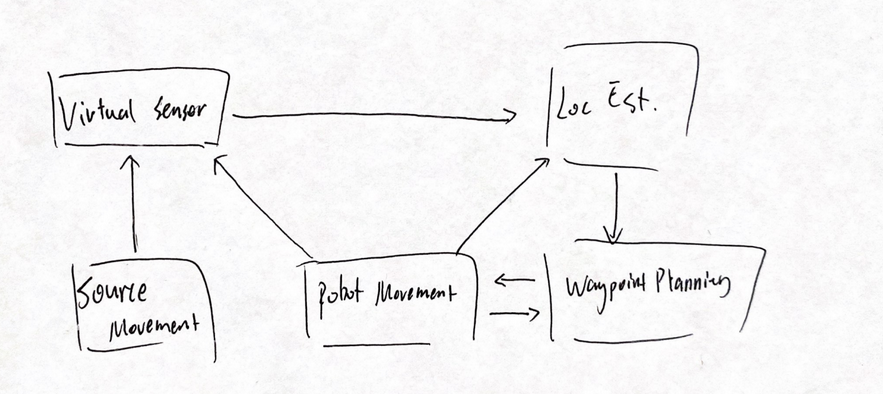 Virtual Sensor
Loc Est.
Source
Movement
Robot Movement
Waypoint Planning